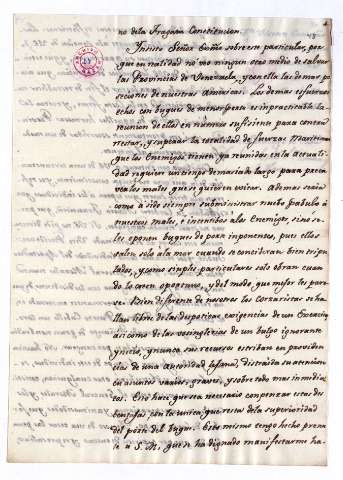 no de la Fragata Constitucion.
Insisto Señor Exmo sobre este particular, por
que en realidad no veo ningun otro medio de salvar
las Provincias de Venezuela, y con ella las demas po
seciones de nuestras Americas. Los demas esfuerzos
echos con buques de menor fuerza es impracticable la
reunion de ellos en numero sufisiente para contra
rrestar, y superar la totalidad de fuerzas Maritimas
que los Enemigos tienen ya reunidas en la actuali
dad requiere un tiempo demasiado largo para preca
ver los males que se quieren evitar. Ademas sería
como á sido siempre subministrar nuebo pabulo á
nuestros males, é incentibo a los Enemigos, sino se
les oponen buques de porte imponentes, pues ellos
salen solo al mar cuando se consideran bien tripu
lados, y como simples particulares solo obran cuan
do lo creen oportuno, y del modo que mejor les pare
se. Bien diferente de nosotros los Corzaristas se ha
llan libres de las despoticas exigencias de un
asi como de las vosinglerias de un bulgo ignorante
y nunca sus recursos estriban en providen
cias de una autoridad lejana, distraida su atencion
en asuntos varios, graves, y sobre todo mas inmedia
tos. Esto hace que sea necesario compensar estas des
bentajas con la unica, que resta de la superioridad
del porte del buque. Esto mismo tengo hecho presen
te á S. M. que se ha dignado manifestarme ha-